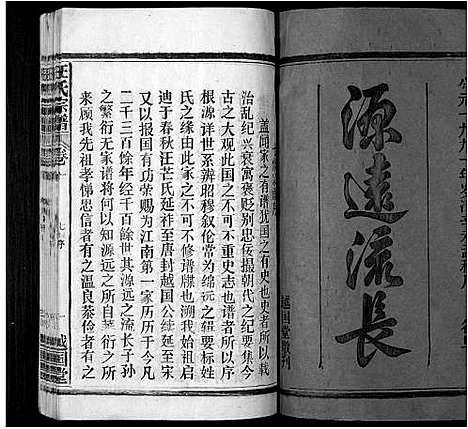 源遠流長
越国堂敬刊
盖闻家之有谱犹国之有史也史者所以载
治乱纪兴衰寓褒贬别忠佞撮朝代之纪要集今
古之大观此国之不可不重史志也谱者所以序
根源详世系辨昭穆叙伦常为绵远之辑要标姓
氏之缘由此家之不可不修谱牒也溯我始祖启
迪于春秋汪芒氏延祚至唐封越国公续延至宋
又以报国有功荣赐为江南第一家历历于今凡
二千三百馀年经千百馀世其源远之流长子孙
蕃衍之无有家谱将何以知源远之所自蕃衍之所
来顾我先祖孝悌忠信者有之温良恭俭者有之
汪氏宗譜
卷一
序
越国堂